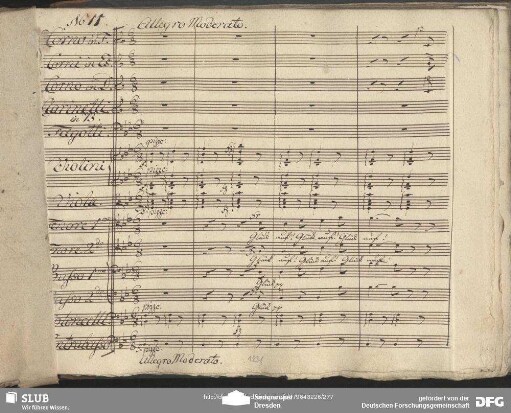 No 11
Allegro Moderato.
Corno in F.
Corni in Es
Corno in
Clarinetti
in B.
Fagotti
pizz.
Violini
pizz.
Viola
pizz.
Tenore 1mo
Glück auf! Glück auf! Glück auf!
Tenore 2do
Glück auf! Glück auf! Glück auf!
Basso 1mo
Glück
Basso 2do
Glück
pizz.
Violoncelli
pizz.
Allegro Moderato.
SLUB
Wir führen Wissen.
Dresden
gefördert von der
Deutschen Forschungsgemeinschaft
DFG